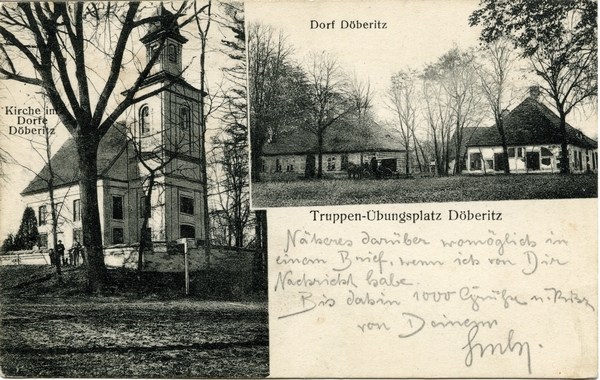 Dorf Döberitz
Kirche im
Dorfe
Döberitz
Truppen-Übungsplatz Döberitz
Näheres darüber womöglich in
einem Brief, wenn ich von Dir
Nachricht habe.
Bis dahin 1000 Grüße u.
von Deinem